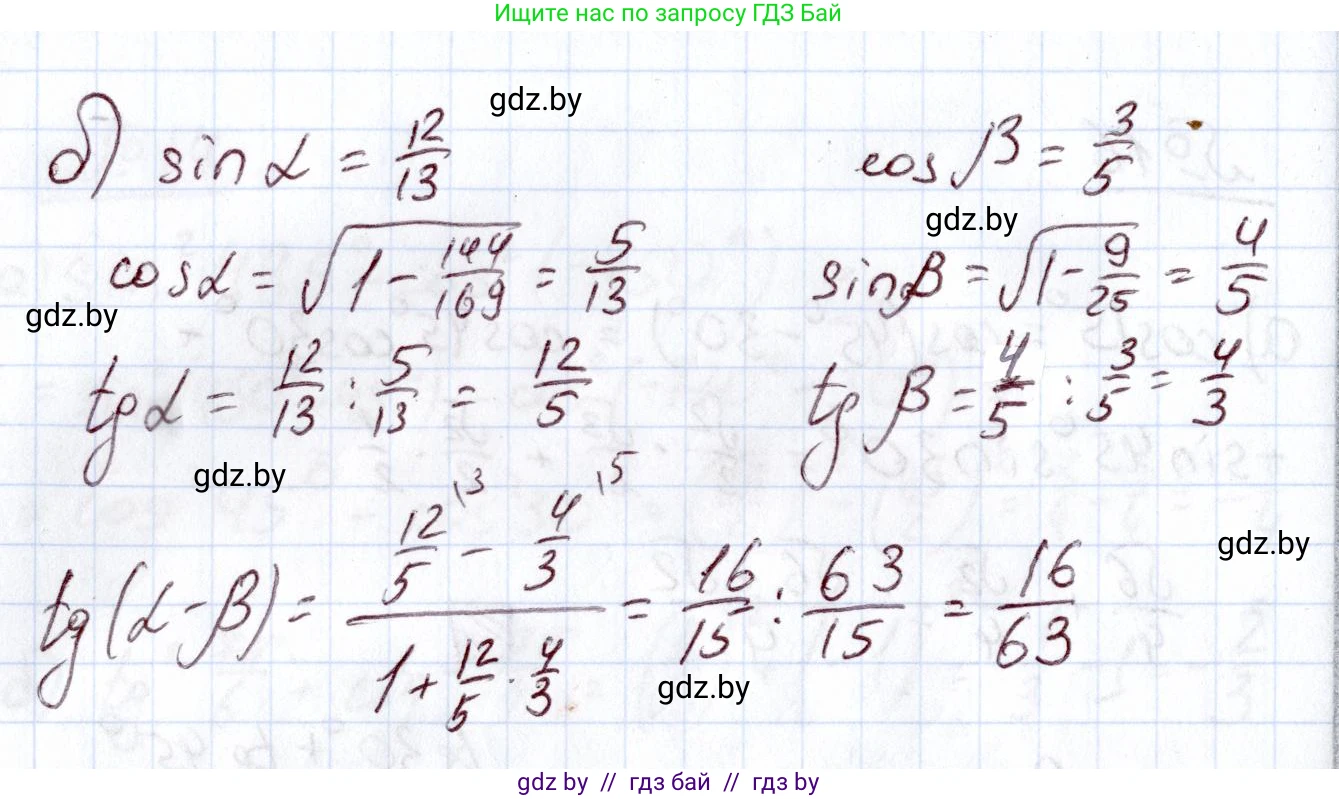 Ищите нас по запросу ГДЗ Бай
gdz.by
б) sin α = 12/13 cos β = 3/5
gdz.by
cos α = √(1 - 144/169) = 5/13 sin β = √(1 - 9/25) = 4/5
gdz.by
tg α = 12/13 : 5/13 = 12/5 tg β = 4/5 : 3/5 = 4/3
gdz.by
gdz.by
tg(α - β) = (12/5 \3 - 4/3 \5)/(1 + 12/5 · 4/3) = 16/15 : 63/15 = 16/63
gdz.by
gdz by // гдз бай // гдз by